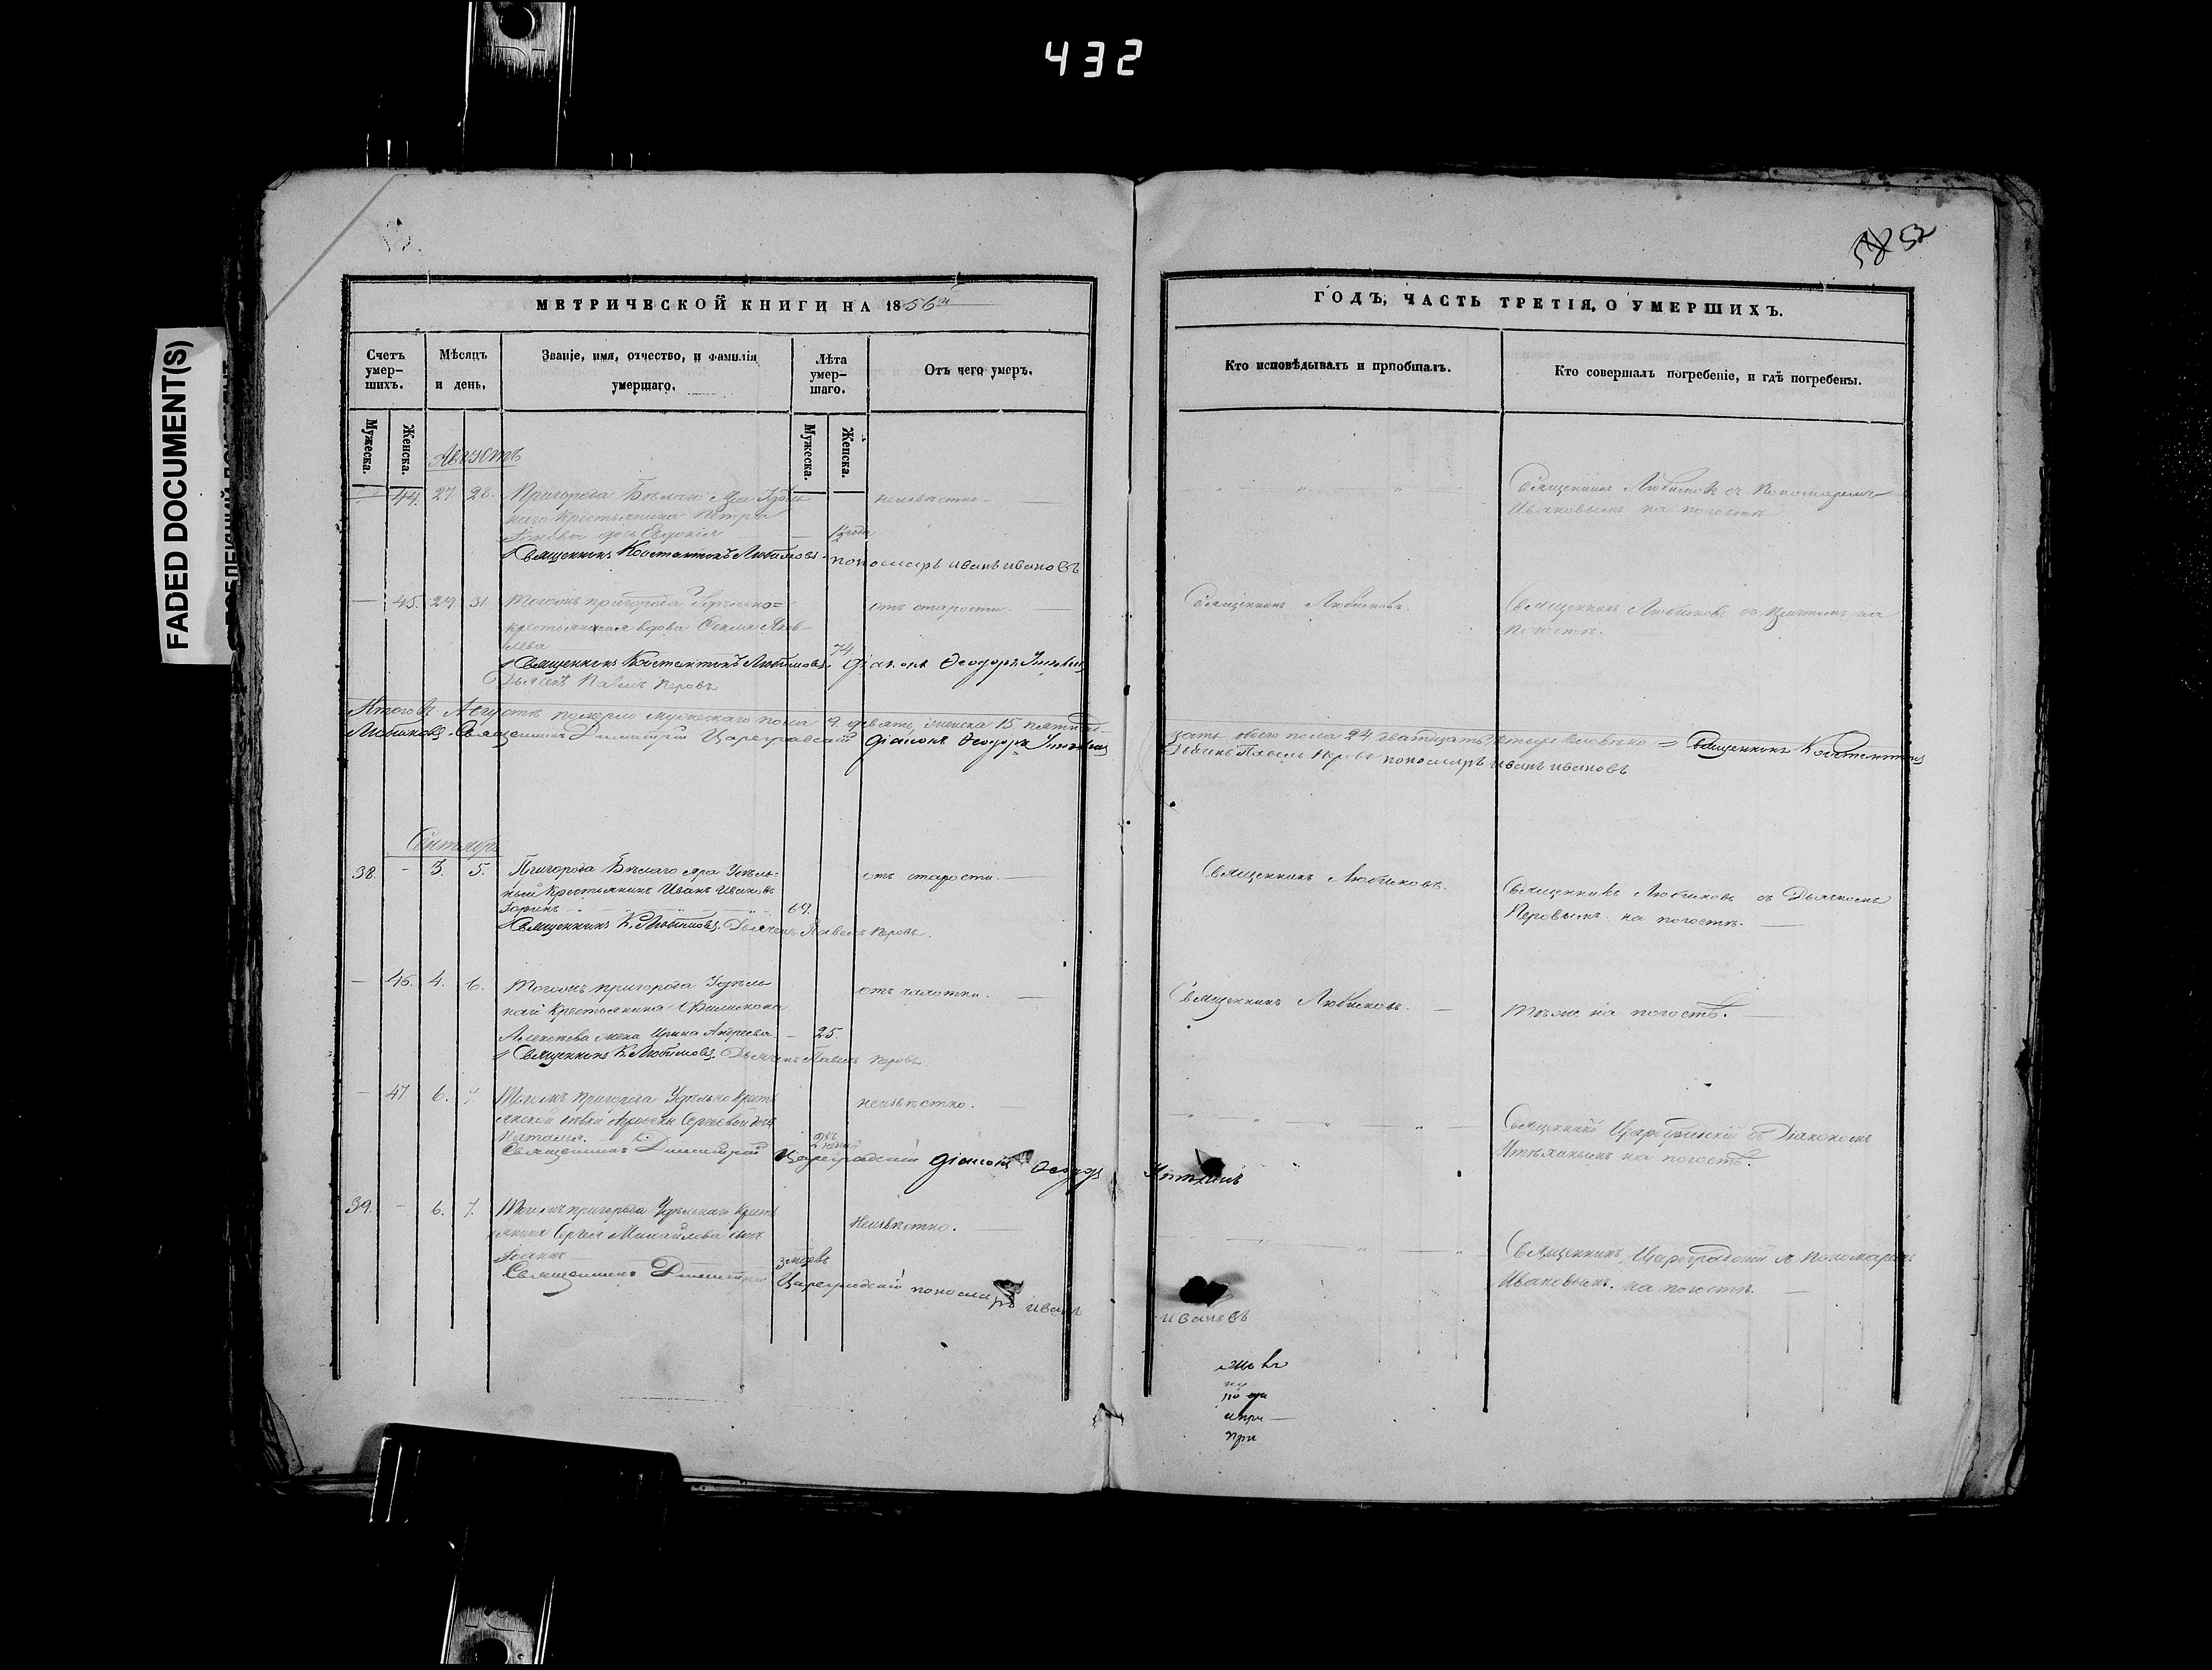 432
FADED DOCUMENT(S)
52
МЕТРИЧЕСКОЙ КНИГИ НА 1856й
ГОДЪ, ЧАСТЬ ТРЕТІЯ, О УМЕРШИХЪ.
Счетъ умер-шихъ.
Мѣсяцъ и день.
Званіе, имя, отчество, и фамилія умершаго.
Лѣта умер-шаго.
Отъ чего умеръ.
Кто исповѣдывалъ и пріобщалъ.
Кто совершалъ погребеніе, и гдѣ погребены.
Мужеска.
Женска.
Мужеска.
Женска.
Августъ
— 44. 27 28. Пригорода Бѣлаго Яра Удѣль
неизвѣстно. —
Священникъ Любимовъ съ Пономаремъ
наго крестьянина Петра
Ивановымъ на погостѣ
дочь Евдокія
года
Священникъ Константинъ Любимовъ. пономарь иванъ ивановъ
— 45. 29 31 Тогожъ пригорода Удѣльно=
отъ старости. —
Священникъ Любимовъ.
Священникъ Любимовъ съ причтомъ на
крестьянская вдова Ѳекла Яков-
погостѣ.
лева
74.
Священникъ Константинъ Любимовъ. Діаконъ Ѳеодоръ
Дьячекъ Павелъ Перовъ
Итого въ Августѣ померло мужескаго пола 9. девять, женска 15 пятнад-
цать обоего пола 24. двадцать четыре человѣка = Священникъ Константинъ
Любимовъ. Священникъ Димитрій Цареградскій Діаконъ Ѳеодоръ
Дьячекъ Павелъ Перовъ пономарь иванъ ивановъ
Сентябрь
38. - 3. 5. Пригорода Бѣлаго яра Удѣль-
отъ старости. —
Священникъ Любимовъ.
Священникъ Любимовъ съ Дьячкомъ
ный крестьянинъ Иванъ Ивановъ
Перовымъ на погостѣ. —
69.
Священникъ К. Любимовъ. Дьячекъ Павелъ Перовъ.
— 46. 4. 6. Тогожъ пригорода Удѣль
отъ чахотки. —
Священникъ Любимовъ. —
Тѣже на погостѣ. —
наго крестьянина Филимона
Алексѣева жена Ирина Андреева — 25.
Священникъ К. Любимовъ. Дьячекъ Павелъ Перовъ.
— 47 6. 7. Тогожъ пригорода Удѣльно крест
неизвѣстно. —
Священникъ Цареградскій съ Діакономъ
янской дѣвки Сергѣевой дочь
на погостѣ.
Наталья.
Священникъ Димитрій Цареградскій Діаконъ Ѳеодоръ
39. - 6. 7. Тогожъ пригорода Удѣльнаго крест
Неизвѣстно. —
Священникъ Цареградскій съ Пономаремъ
янина Сергѣя Михайлова сынъ
Ивановымъ. на погостѣ. —
Іоаннъ
Священникъ Димитрій Цареградскій пономарь иванъ
ивановъ
при